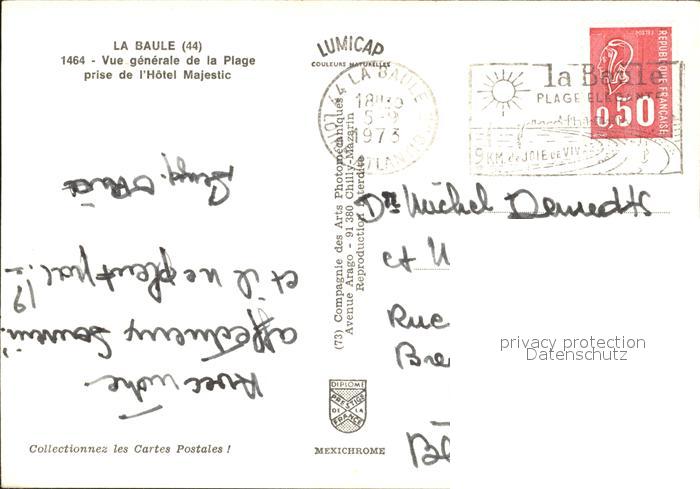 LA BAULE (44)
1464 - Vue générale de la Plage
prise de l'Hôtel Majestic
LUMICAP
COULEURS NATURELLES
44 LA BAULE
18H30
5-9
1973
la Baule
PLAGE ELEGANTE
9 KM. de JOIE de VIVRE
REPUBLIQUE FRANÇAISE
0,50
(73) Compagnie des Arts Photomécaniques
Avenue Arago - 91 380 Chilly-Mazarin
Reproduction interdite
Avec notre
affectueux souvenir.
et il ne pleut pas !!
Dr Michel Demedts
et
Rue
Bre
privacy protection
Datenschutz
DIPLOME
PRESTIGE
DE LA
FRANCE
Collectionnez les Cartes Postales !
MEXICHROME